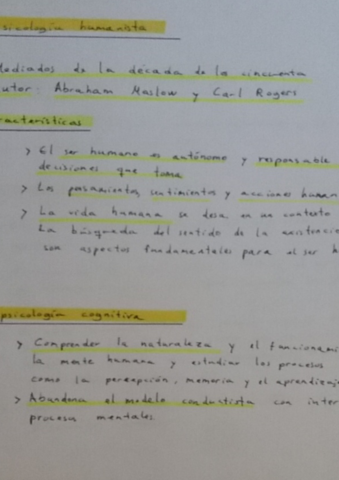 sicología humanista
Mediados de la década de la cincuenta
utor: Abraham Maslow y Carl Rogers
racterísticas
> El ser humano es autónomo y responsable
decisiones que toma
> Los pensamientos, sentimientos y acciones human
> La vida humana se desa en un contexto
La búsqueda del sentido de la existencia
son aspectos fundamentales para el ser h
psicología cognitiva
> Comprender la naturaleza y el funcionami
la mente humana y estudiar los procesos
como la percepción, memoria y el aprendizaj
> Abandona el modelo conductista con inter
procesos mentales